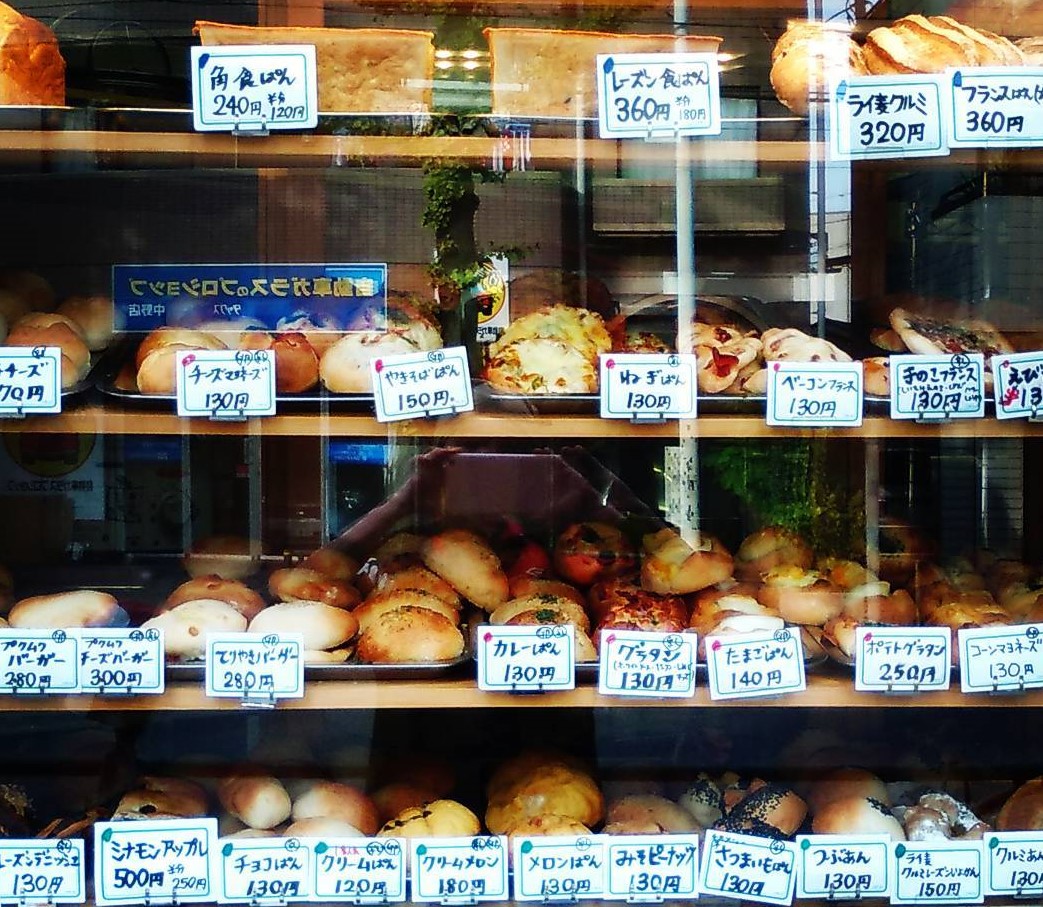 角食ぱん
240円 半分 120円
レーズン食ぱん
360円 半分 180円
ライ麦クルミ
320円
フランスぱん
360円
自動車ガラスのプロショップ
中野店
チーズ
70円
チーズマヨネーズ
130円
やきそばぱん
150円
ねぎぱん
130円
ベーコンフランス
130円
きのこフランス
130円
えび
プクムク
バーガー
280円
プクムク
チーズバーガー
300円
てりやきバーガー
280円
カレーぱん
130円
グラタン
130円
たまごぱん
140円
ポテトグラタン
250円
コーンマヨネーズ
130円
レーズンデニッシュ
130円
シナモンアップル
500円 半分 250円
チョコぱん
130円
クリームぱん
120円
クリームメロン
180円
メロンぱん
130円
みそピーナッツ
130円
さつまいもぱん
130円
つぶあん
130円
ライ麦
クルミレーズンようかん
150円
クルミあん
130